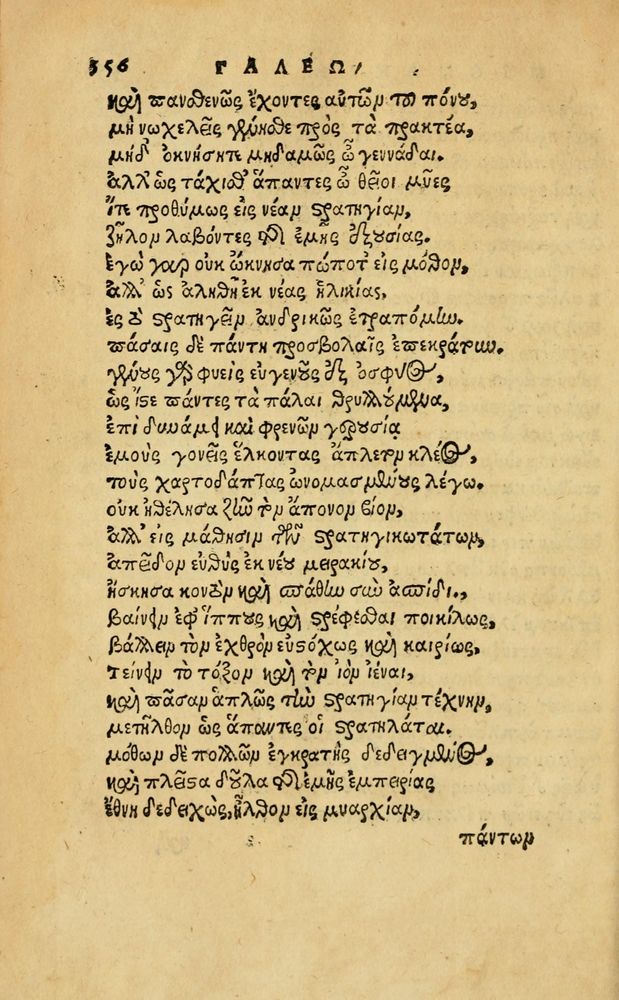 356 ΓΑΛΕΩ,
καὶ πανσθενῶς ἔχοντες αὐτῶν τοῦ πόνου,
μὴ νωχελεῖς γίνοισθε πρὸς τὰ πρακτέα,
μηδ' ὀκνήσητε μηδαμῶς ὦ γεννάδαι.
ἀλλ' ὡς τάχισθ' ἅπαντες ὦ θεῖοι μῦες
ἴτε προθύμως εἰς νέαν στρατηγίαν,
ζῆλον λαβόντες τῆς ἐμῆς ἐξουσίας.
ἐγὼ γὰρ οὐκ ὤκνησα πώποτ' εἰς μόθον,
ἀλλ' ὡς ἀληθῆ ἐκ νέας ἡλικίας,
ἐς τὸ στρατηγεῖν ἀνδρικῶς ἐτραπόμην.
πάσαις δὲ πάντη προσβολαῖς ἐπεκράτουν.
γένους γὰρ φυεὶς εὐγενοῦς ἐξ ὀσφύος,
ὡς ἴστε πάντες τὰ πάλαι θρυλλούμενα,
ἐπὶ δυνάμει καὶ φρενῶν γερουσίᾳ
ἐμοὺς γονεῖς ἕλκοντας ἄπλετον κλέος,
τοὺς χαρτοδάπτας ὠνομασμένους λέγω.
οὐκ ἠθέλησα ζῆν τὸν ἄπονον βίον,
ἀλλ' εἰς μάθησιν τῶν στρατηγικωτάτων,
ἀπεῖδον εὐθὺς ἐκ νέου μειρακίου,
ἤσκησα κοντὸν καὶ σπάθην σὺν ἀσπίδι,
βαίνειν ἐφ' ἵππους καὶ στρέφεσθαι ποικίλως,
βάλλειν τὸν ἐχθρὸν εὐστόχως καὶ καιρίως,
τείνειν τὸ τόξον καὶ τὸν ἰὸν ἱέναι,
καὶ πᾶσαν ἁπλῶς τὴν στρατηγίαν τέχνην,
μετῆλθον ὡς ἅπαντες οἱ στρατηλάται.
μόθων δὲ πολλῶν ἐγκρατὴς δεδειγμένος,
καὶ πλεῖστα δοῦλα τῆς ἐμῆς ἐμπειρίας
ἔθνη δεδειχὼς, ἦλθον εἰς μοναρχίαν,
πάντων